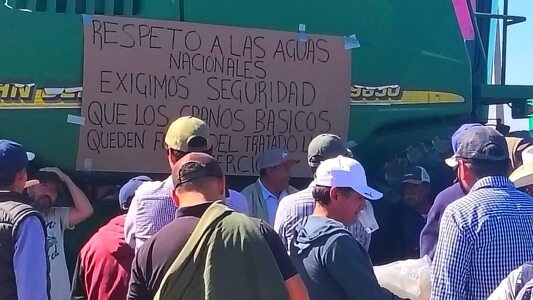 RESPETO A LAS AGUAS
NACIONALES
EXIGIMOS SEGURIDAD
QUE LOS GRANOS BASICOS
QUEDEN DEL TRATADO
9650